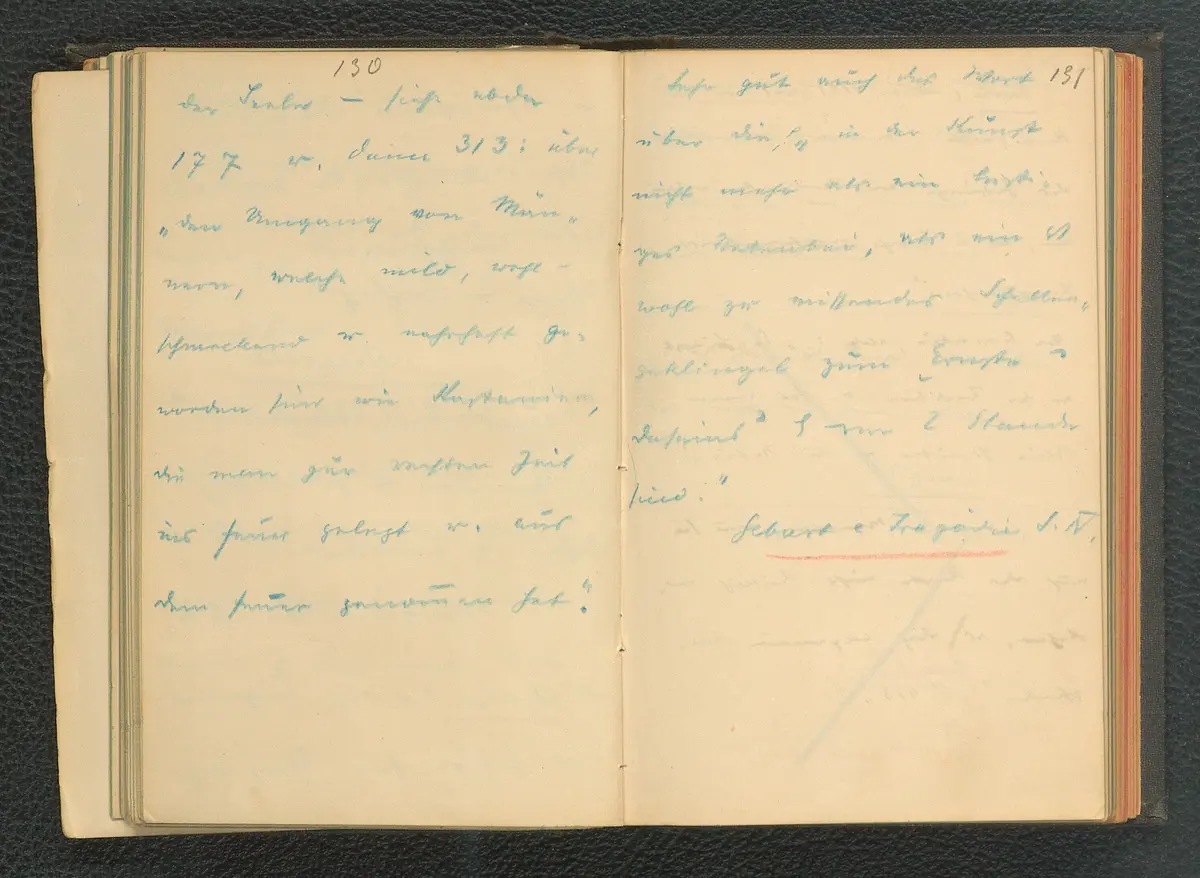 130
der Seele – siehe
177 u. dann 313: über
„den Umgang von Män„
nern, welche mild, wohl–
schmeckend u. nahrhaft ge„
worden sind wie Kastanien,
die man zur rechten Zeit
ins Feuer gelegt u. aus
dem Feuer genom̅en hat“.
131
Sehr gut auch das Wort
über die, „in der Kunst
nicht mehr als ein lusti„
ges Nebenbei, als ein
wohl zu missendes Schellen„
geklingel zum „Ernste d
Daseins“ z Stande
sind.“
Geburt e Tragödie S. IV.